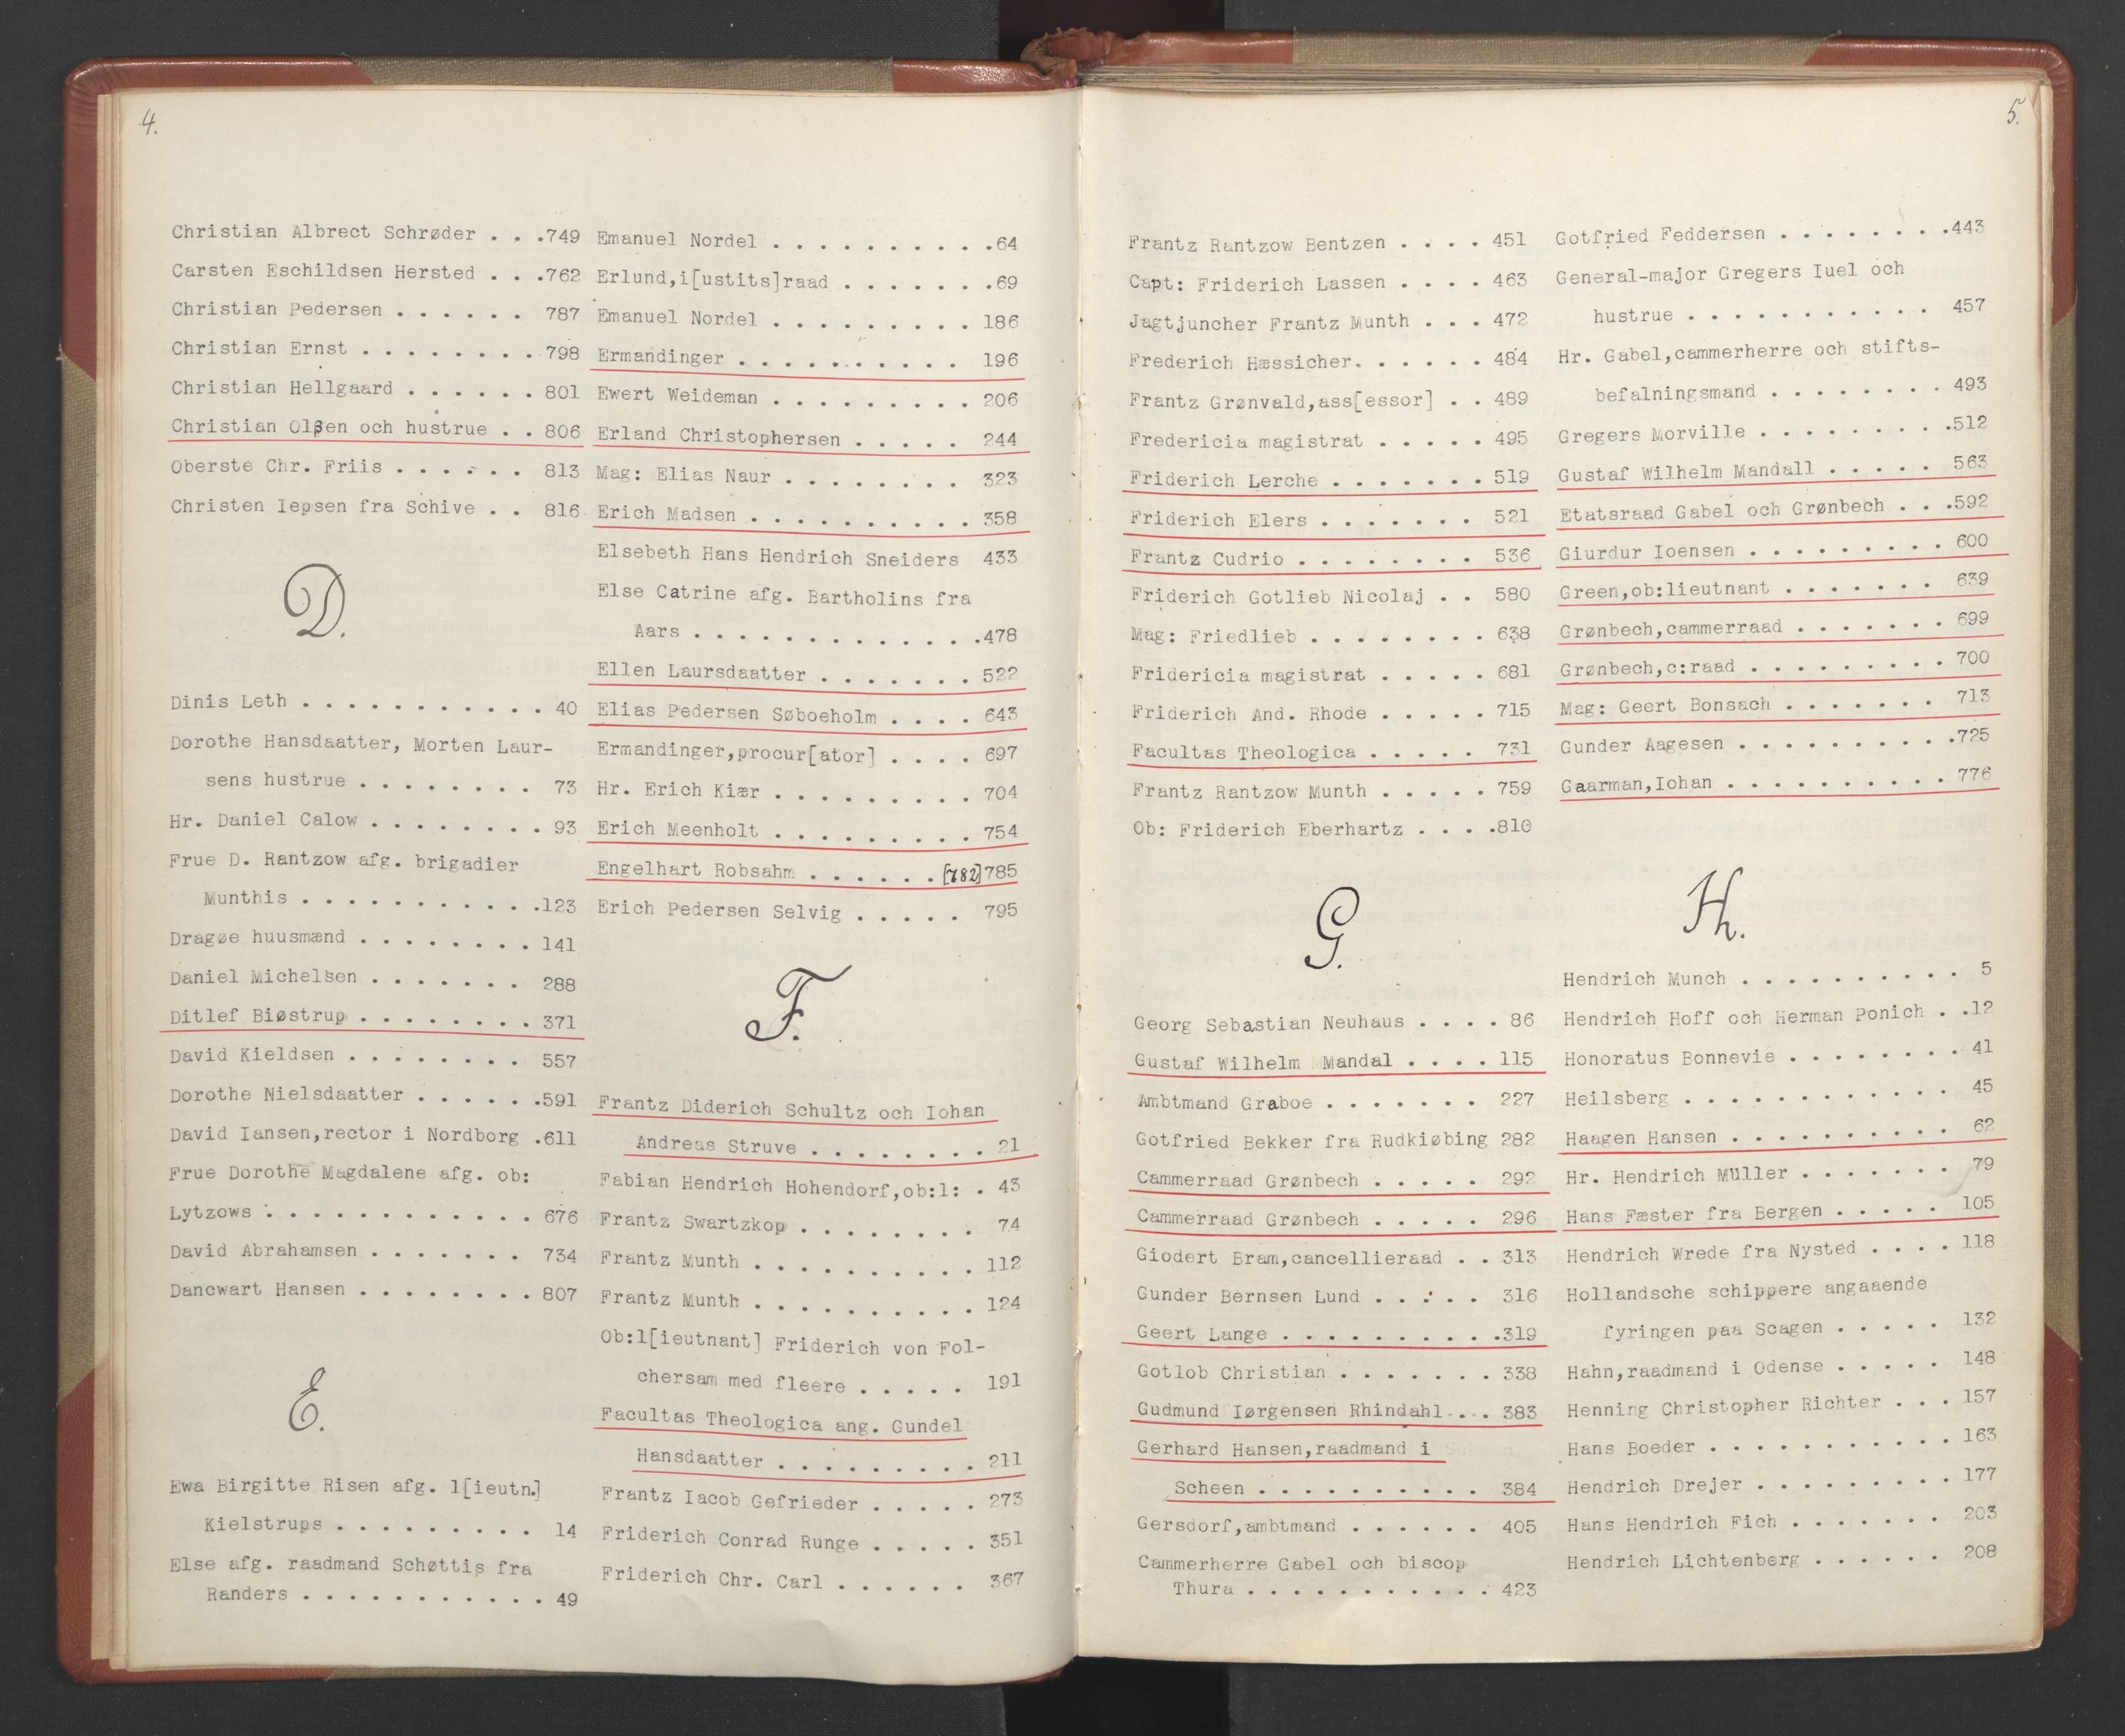 4.
Christian Albrect Schrøder . . .749
Carsten Eschildsen Hersted . . .762
Christian Pedersen . . . . . . 787
Christian Ernst . . . . . . . . 798
Christian Hellgaard . . . . . . 801
Christian Olßen och hustrue . . 806
Oberste Chr. Friis . . . . . . 813
Christen Iepsen fra Schive . . 816
D.
Dinis Leth . . . . . . . . . . . 40
Dorothe Hansdaatter, Morten Laur-
sens hustrue . . . . . . . . 73
Hr. Daniel Calow . . . . . . . . 93
Frue D. Rantzow afg. brigadier
Munthis . . . . . . . . . . .123
Dragøe huusmænd . . . . . . . . 141
Daniel Michelsen . . . . . . . 288
Ditlef Biøstrup . . . . . . . . 371
David Kieldsen . . . . . . . . 557
Dorothe Nielsdaatter . . . . . .591
David Iansen,rector i Nordborg .611
Frue Dorothe Magdalene afg. ob:
Lytzows . . . . . . . . . . . . 676
David Abrahamsen . . . . . . . 734
Dancwart Hansen . . . . . . . . 807
E.
Ewa Birgitte Risen afg. l[ieutn.]
Kielstrups . . . . . . . . . 14
Else afg. raadmand Schøttis fra
Randers . . . . . . . . . . . 49
Emanuel Nordel . . . . . . . . . .64
Erlund,i[ustits]raad . . . . . . .69
Emanuel Nordel . . . . . . . . . 186
Ermandinger . . . . . . . . . . 196
Ewert Weideman . . . . . . . . . 206
Erland Christophersen . . . . . 244
Mag: Elias Naur . . . . . . . . 323
Erich Madsen . . . . . . . . . . 358
Elsebeth Hans Hendrich Sneiders 433
Else Catrine afg. Bartholins fra
Aars . . . . . . . . . . . . .478
Ellen Laursdaatter . . . . . . . 522
Elias Pedersen Søboeholm . . . . 643
Ermandinger,procur[ator] . . . . 697
Hr. Erich Kiær . . . . . . . . . 704
Erich Meenholt . . . . . . . . . 754
Engelhart Robsahm . . . . . . [782]785
Erich Pedersen Selvig . . . . . 795
F.
Frantz Diderich Schultz och Iohan
Andreas Struve . . . . . . . . 21
Fabian Hendrich Hohendorf,ob:l: . 43
Frantz Swartzkop . . . . . . . . 74
Frantz Munth . . . . . . . . . . 112
Frantz Munth . . . . . . . . . . 124
Ob:l[ieutnant] Friderich von Fol-
chersam med fleere . . . . . 191
Facultas Theologica ang. Gundel
Hansdaatter . . . . . . . . . 211
Frantz Iacob Gefrieder . . . . . 273
Friderich Conrad Runge . . . . . 351
Friderich Chr. Carl . . . . . . 367
5.
Frantz Rantzow Bentzen . . . . 451
Capt: Friderich Lassen . . . . 463
Jagtjuncher Frantz Munth . . . 472
Frederich Hæssicher. . . . . . 484
Frantz Grønvald,ass[essor] . . 489
Fredericia magistrat . . . . . 495
Friderich Lerche . . . . . . . 519
Friderich Elers . . . . . . . 521
Frantz Cudrio . . . . . . . . 536
Friderich Gotlieb Nicolaj . . 580
Mag: Friedlieb . . . . . . . . 638
Fridericia magistrat . . . . . 681
Friderich And. Rhode . . . . . 715
Facultas Theologica . . . . . 731
Frantz Rantzow Munth . . . . . 759
Ob: Friderich Eberhartz . . . .810
G.
Georg Sebastian Neuhaus . . . . 86
Gustaf Wilhelm Mandal . . . . 115
Ambtmand Graboe . . . . . . . 227
Gotfried Bekker fra Rudkiøbing 282
Cammerraad Grønbech . . . . . 292
Cammerraad Grønbech . . . . . 296
Giodert Bram,cancellieraad . . 313
Gunder Bernsen Lund . . . . . 316
Geert Lange . . . . . . . . . .319
Gotlob Christian . . . . . . . 338
Gudmund Iørgensen Rhindahl . . 383
Gerhard Hansen,raadmand i
Scheen . . . . . . . . . . 384
Gersdorf,ambtmand . . . . . . 405
Cammerherre Gabel och biscop
Thura . . . . . . . . . . . 423
Gotfried Feddersen . . . . . . . .443
General-major Gregers Iuel och
hustrue . . . . . . . . . . . 457
Hr. Gabel,cammerherre och stifts-
befalningsmand . . . . . . . . 493
Gregers Morville . . . . . . . . .512
Gustaf Wilhelm Mandall . . . . . 563
Etatsraad Gabel och Grønbech . . .592
Giurdur Ioensen . . . . . . . . . 600
Green,ob:lieutnant . . . . . . . 639
Grønbech,cammerraad . . . . . . . 699
Grønbech,c:raad . . . . . . . . . 700
Mag: Geert Bonsach . . . . . . . 713
Gunder Aagesen . . . . . . . . . .725
Gaarman,Iohan . . . . . . . . . . 776
H.
Hendrich Munch . . . . . . . . . . 5
Hendrich Hoff och Herman Ponich . .12
Honoratus Bonnevie . . . . . . . . 41
Heilsberg . . . . . . . . . . . . 45
Haagen Hansen . . . . . . . . . . 62
Hr. Hendrich Müller . . . . . . . 79
Hans Fæster fra Bergen . . . . . 105
Hendrich Wrede fra Nysted . . . . 118
Hollandsche schippere angaaende
fyringen paa Scagen . . . . . 132
Hahn,raadmand i Odense . . . . . 148
Henning Christopher Richter . . . 157
Hans Boeder . . . . . . . . . . . 163
Hendrich Drejer . . . . . . . . . 177
Hans Hendrich Fich . . . . . . . 203
Hendrich Lichtenberg . . . . . . 208